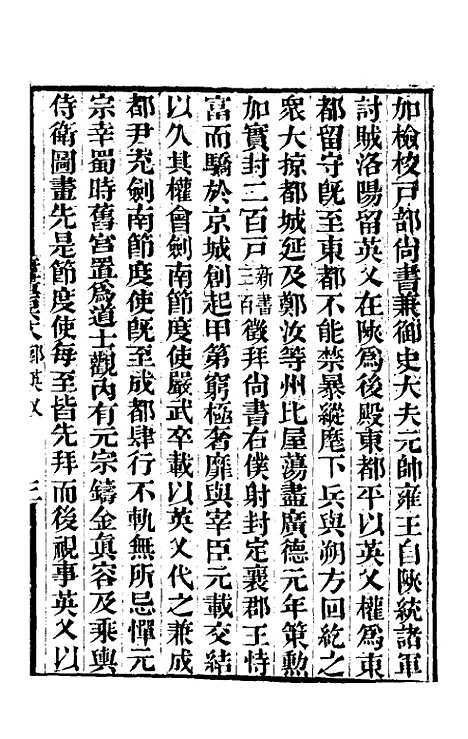 加檢校戸部尚書兼御史大夫元帥雍王自陝統諸軍
討賊洛陽留英乂在陝爲後殿東都平以英乂權爲東
都留守旣至東都不能禁暴縱麾下兵與朔方回紇之
衆大掠都城延及鄭汝等州比屋蕩盡廣德元年策勲
加實封二百戸新書三百徵拜尚書右僕射封定襄郡王恃
富而驕於京城創起甲第窮極奢靡與宰臣元載交結
以久其權會劍南節度使嚴武卒載以英乂代之兼成
都尹充劍南節度使旣至成都肆行不軌無所忌憚元
宗幸蜀時舊宮置爲道士觀內有元宗鑄金眞容及乘輿
侍衛圖畫先是節度使每至皆先拜而後視事英乂以
郭英乂